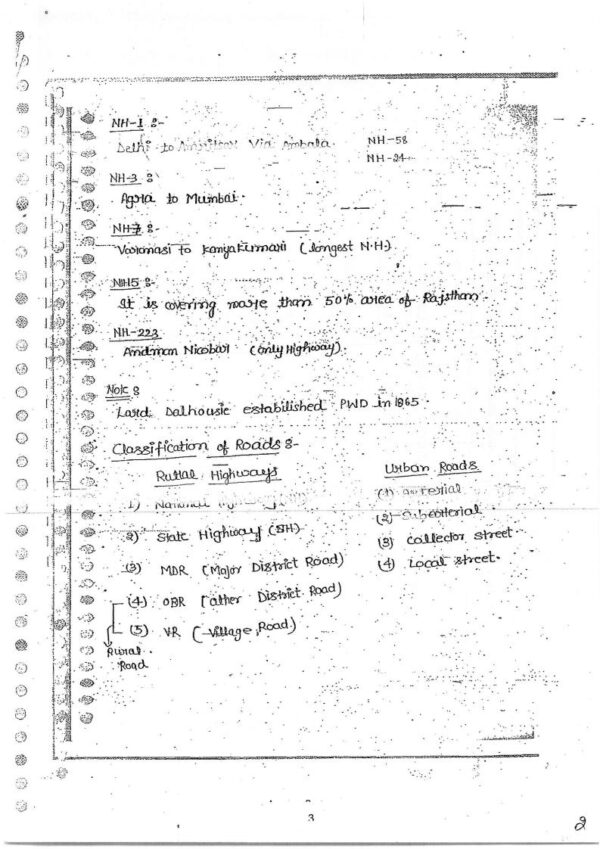 NH-1 :-
Delhi to Amritsar Via Ambala
NH-58
NH-24
NH-3 :
Agra to Mumbai.
NH-7 :-
Varanasi to Kanyakumari (longest N.H.)
NH5 :-
It is covering more than 50% area of Rajsthan.
NH-223
Andman Nicobar (only Highway).
Note :
Lard. Dalhousie estabilished PWD in 1865.
Classification of Roads :-
Rural Highways
1) National
2) State Highway (SH)
(3) MDR (Major District Road)
(4) ODR (other District Road)
(5) VR (Village Road)
Rural
Road
Urban Roads
(1) Arterial
(2) Subarterial
(3) Collector street.
(4) Local street.
3
2